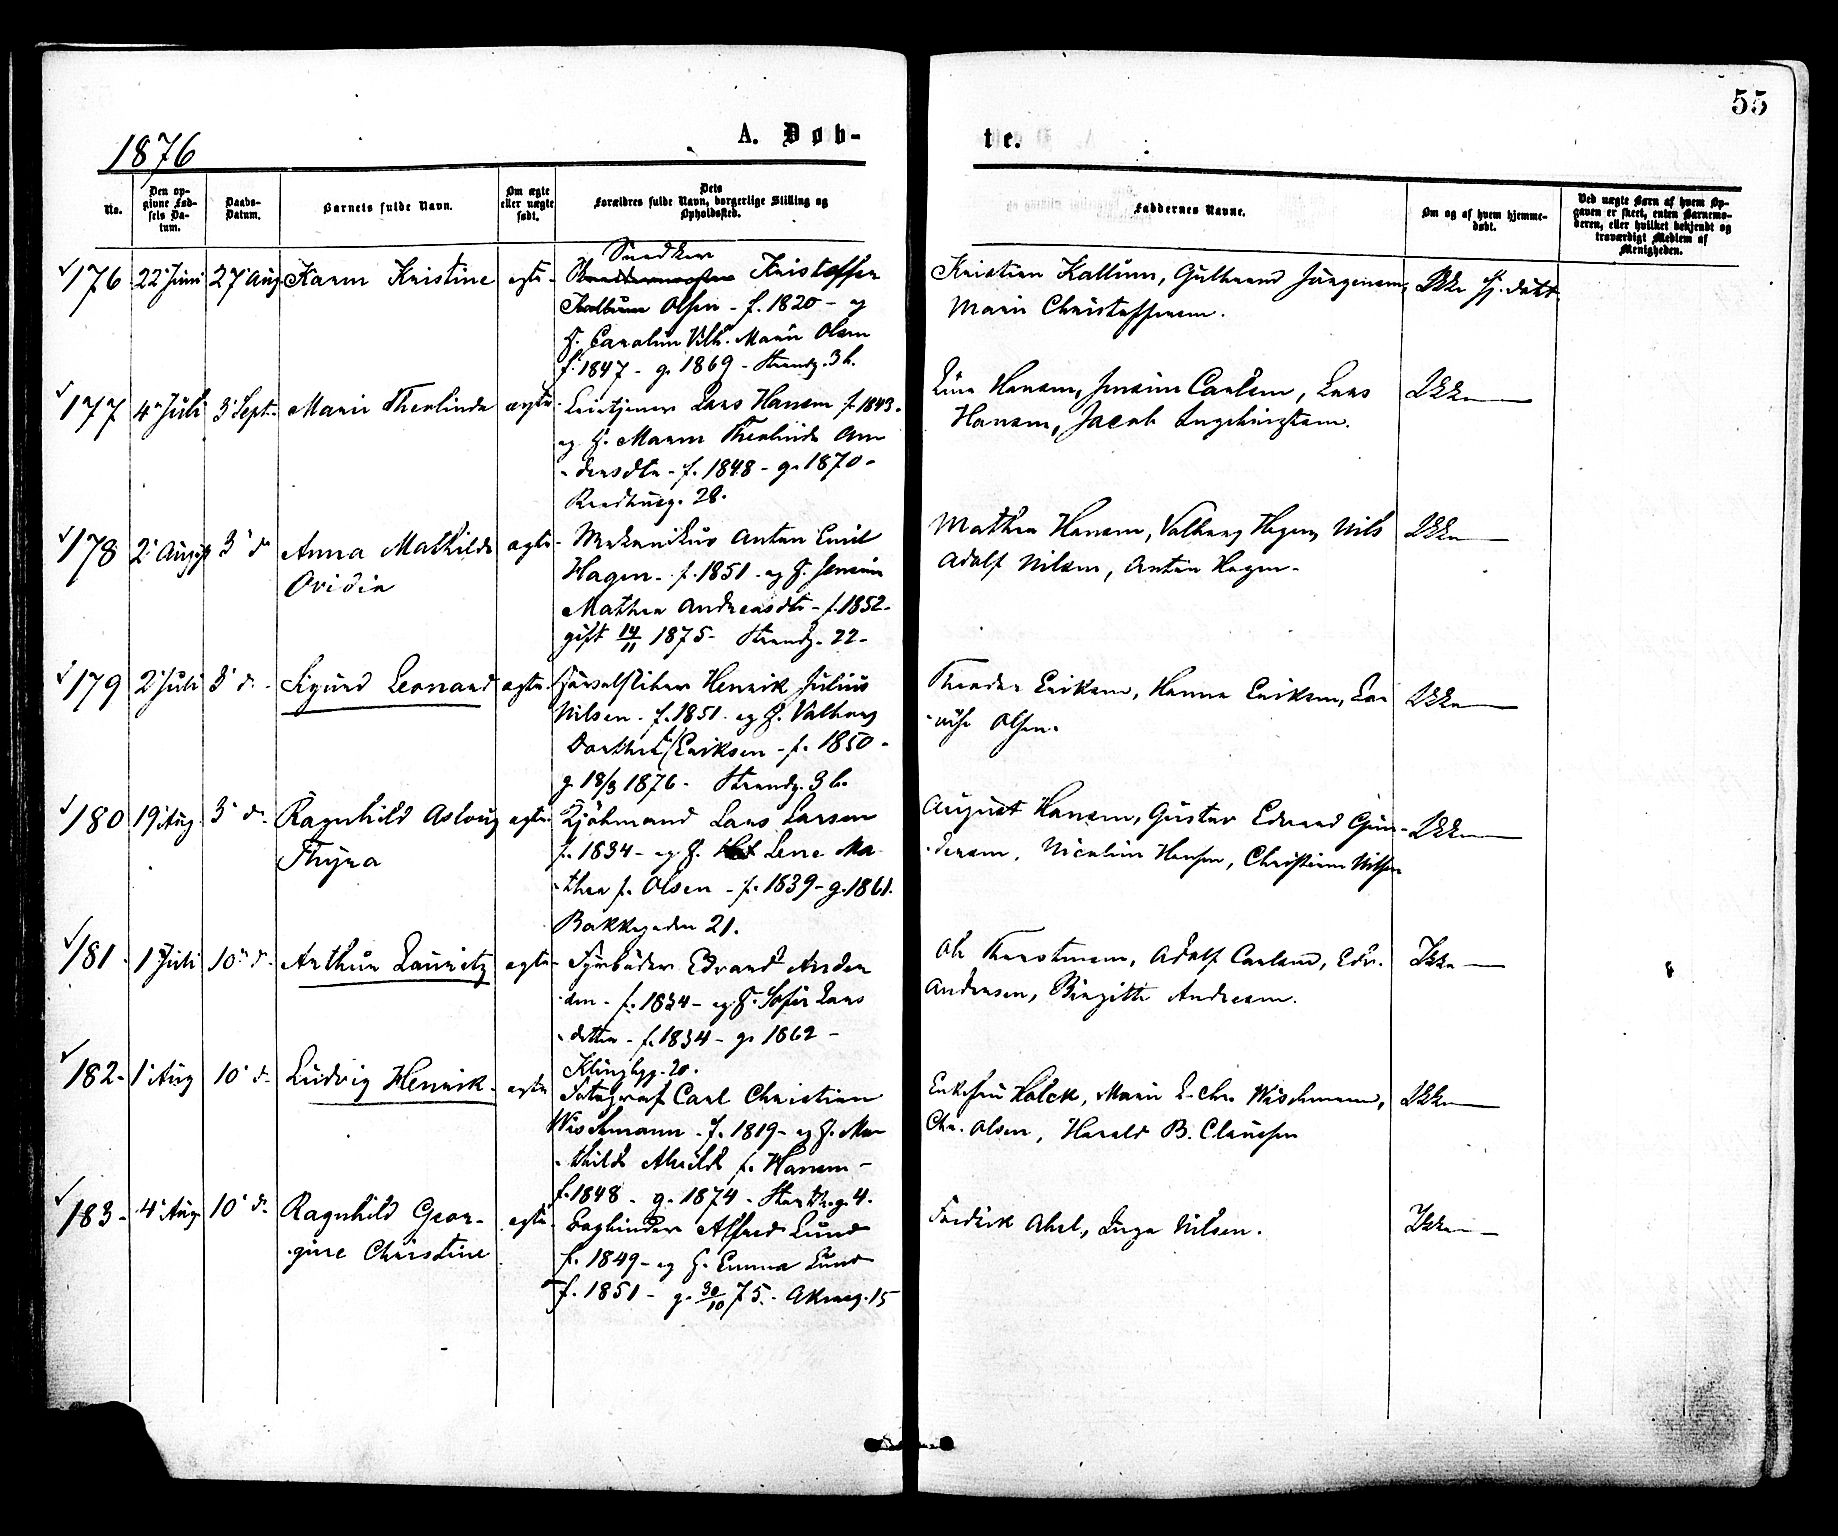 55
1876
A. Døb-
te.
No.
Den op-
givne Fød-
sels Da-
tum.
Daabs-
Datum.
Barnets fulde Navn.
Om ægte
eller uægte
født.
Dets
Forældres fulde Navn, borgerlige Stilling og
Opholdssted.
Faddernes Navne.
Om og af hvem hjemme-
døbt.
Ved uægte Børn af hvem Op-
gaven er skeet, enten Barnemo-
deren, eller hvilket bekjendt og
troværdigt Medlem af
Menigheden.
176 22 Juni 27 Aug Karen Kristine egte
Snedker
Kristoffer
Olsen - f. 1820 - og
H. Caroline Vilh. Marie Olsen
f. 1847 - g. 1869 - Strandg. 3 b.
Kristian Kallum, Gulbrand Jürgensen,
Marie Christoffersen.
Ikke hj. døbt
177 4 Juli 3 Sept. Marie Theolinde ægte
Lars Hansen f. 1843.
og H. Maren Theolinde An
dersdtr - f. 1848 - g. 1870 -
Raadhusg. 28.
Line Hansen, Jensine Carlsen, Lars
Hansen, Jacob Ingebrigtsen.
Ikke
178 2 August 3 d. Anna Mathilde egte
Ovidia
Mekanikus Anton Emil
Hagen - f. 1851 - og H. Jensine
Mathea Andreasdtr - f. 1852 -
gift 14/11 1875 - Strandg. 22 -
Mathea Hansen, Valborg Hagen, Nils
Adolf Nilsen, Anton Hagen -
Ikke
179 2 Juli 3 d. Sigurd Leonard egte
Henrik Julius
Nilsen - f. 1851 - og H. Valborg
Dorthea Eriksen - f. 1850 -
g. 18/3 1876 - Strandg. 3 b.
Theodor Eriksen, Hanna Eriksen, Lo
vise Olsen.
Ikke
180 19 Aug. 3 d. Ragnhild Aslaug egte
Thyra
Kjøbmand Lars Larsen
f. 1834 - og H. Lene Ma
thea f. Olsen - f. 1839 - g. 1861.
Bakkegaden 21.
August Hansen, Gustav Edvard Gun-
dersen, Nicoline Hansen, Christiane Nilsen
Ikke
181 1 Juli 10 d. Arthur Lauritz egte
Fyrbøder Edvard Ander
sen - f. 1834 - og H. Sofie Lars
datter - f. 1834 - g. 1862 -
Klingbgg. 20.
Ole Thorstensen, Adolf Carlsen, Edv.
Andersen, Birgitte Andresen.
Ikke
182 1 Aug 10 d. Ludvig Henrik egte
Fotograf Carl Christian
Wischmann - f. 1819 - og H. Ma
thilde Alvilde f. Hansen -
f. 1848 - g. 1874 - Storthg. 4.
Enkefru Holck, Marie L. Chr. Wischmann,
Chr. Olsen, Harald B. Clausen
Ikke
183 4 Aug. 10 d. Ragnhild Geor- egte
gine Christine
Bogbinder Alfred Lund
f. 1849 - og H. Emma Lund
f. 1851 - g. 30/10 75. - Akersg. 15
Fredrik Abel, Inga Nilsen.
Ikke